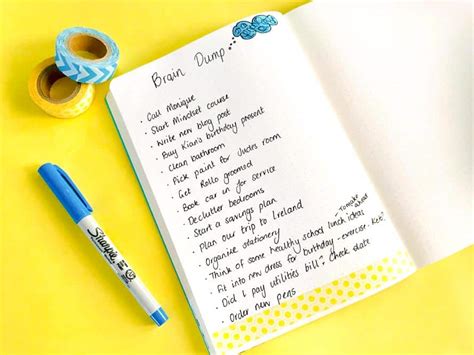 Brain Dump
• Call Monique
• Start Mindset course
• Write new blog post
• Buy Kian's birthday present
• Clean bathroom
• Pick paint for Judes room
• Get Rollo groomed
• Book car in for service
• Declutter bedrooms
• Start a savings plan
• Plan our trip to Ireland
• Organise stationery
• Think of some healthy school lunch ideas
To make ahead
• Fit into new dress for birthday - exercise.
• Did I pay utilities bill? Check date
• Order new pens
Sharpie